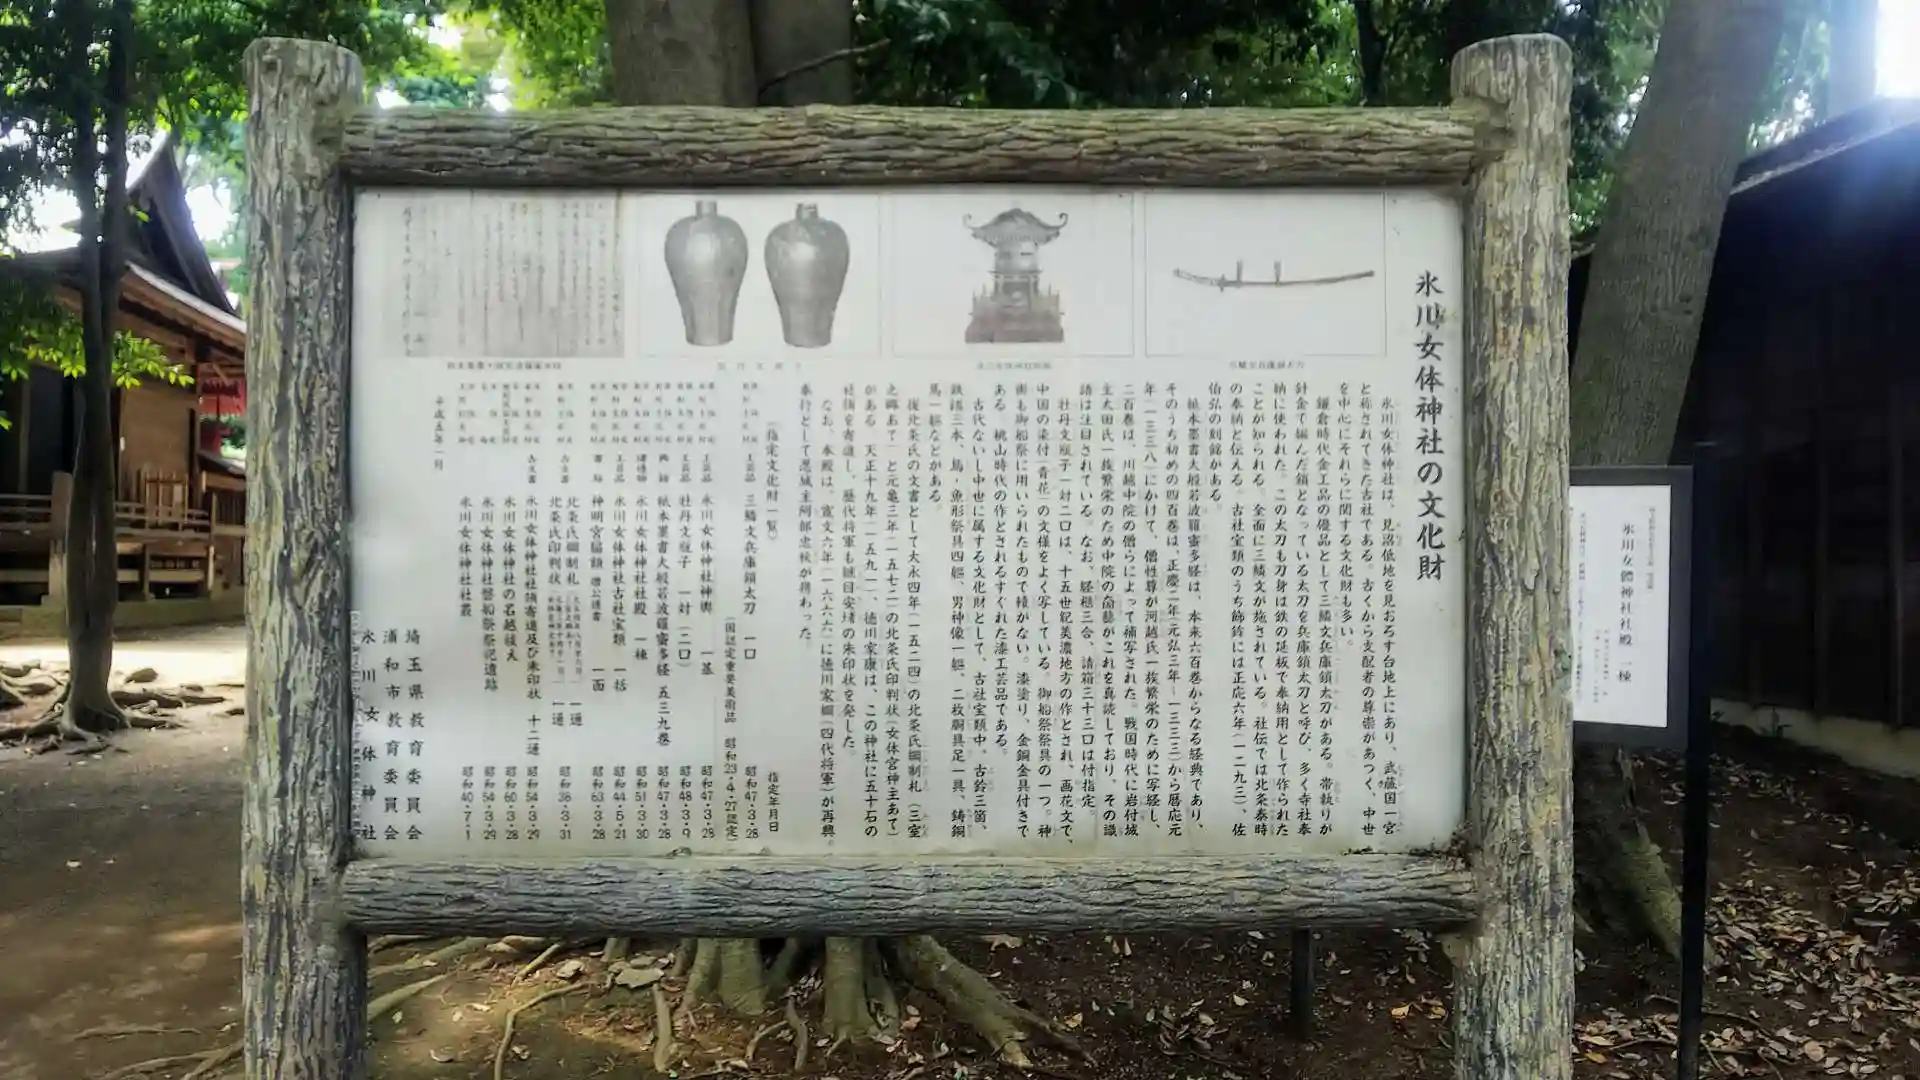 氷川女体神社の文化財
氷川女体神社は、見沼低地を見おろす台地上にあり、武蔵国一宮
と称されてきた古社である。古くから支配者の尊崇があつく、中世
を中心にそれらに関する文化財も多い。
鎌倉時代金工品の優品として三鱗文兵庫鎖太刀がある。帯執りが
針金で編んだ鎖となっている太刀を兵庫鎖太刀と呼び、多く寺社奉
納に使われた。この太刀も刀身は鉄の延板で奉納用として作られた
ことが知られる。全面に三鱗文が施されている。社伝では北条泰時
の奉納と伝える。古社宝類のうち飾鉾には正応六年(一二九三)、佐
伯弘の刻銘がある。
紙本墨書大般若波羅蜜多経は、本来六百巻からなる経典であり、
そのうち初めの四百巻は、正慶二年(元弘三年-一三三三)から暦応元
年(一三三八)にかけて、僧性尊が河越氏一族繁栄のために写経し、
二百巻は、川越中院の僧らによって補写された。戦国時代に岩付城
主太田氏一族繁栄のため中院の奝藝がこれを真読しており、その識
語は注目されている。なお、経櫃三合、請箱三十三口は付指定。
牡丹文瓶子一対二口は、十五世紀美濃地方の作とされ、画花文で、
中国の染付(青花)の文様をよく写している。御船祭祭具の一つ。神
輿も御船祭に用いられたもので轅がない。漆塗り、金銅金具付きで
ある。桃山時代の作とされるすぐれた漆工芸品である。
古代ないし中世に属する文化財として、古社宝類中、古鈴三箇、
鉄鉾三本、馬・魚形祭具四軀、男神像一軀、二枚胴具足一具、鋳銅
馬一軀などがある。
後北条氏の文書として大永四年(一五二四)の北条氏綱制札(三室
之郷あて)と元亀三年(一五七二)の北条氏印判状(女体宮神主あて)
がある。天正十九年(一五九一)、徳川家康は、この神社に五十石の
社領を寄進し、歴代将軍も継目安堵の朱印状を発した。
なお、本殿は、寛文六年(一六六六)に徳川家綱(四代将軍)が再興。
奉行として忍城主阿部忠秋が携わった。
(指定文化財一覧) 指定年月日
工芸品 三鱗文兵庫鎖太刀 一口 昭和47・3・28
(国認定重要美術品 昭和23・4・27認定)
工芸品 氷川女体神社神輿 一基 昭和47・3・28
工芸品 牡丹文瓶子 一対(二口) 昭和48・3・9
典籍 紙本墨書大般若波羅蜜多経 五三九巻 昭和47・3・28
建造物 氷川女体神社社殿 一棟 昭和51・3・30
工芸品 氷川女体神社古社宝類 一括 昭和44・5・21
書跡 神明宮扁額 一面 昭和63・3・28
古文書 北条氏綱制札 一通 昭和38・3・31
北条氏印判状 一通
古文書 氷川女体神社社領寄進及び朱印状 十二通 昭和54・3・29
氷川女体神社の名越祓え 昭和60・3・28
氷川女体神社磐船祭祭祀遺跡 昭和54・3・29
氷川女体神社社叢 昭和40・7・1
平成五年一月
埼玉県教育委員会
浦和市教育委員会
氷川女体神社
氷川女體神社社殿 一棟